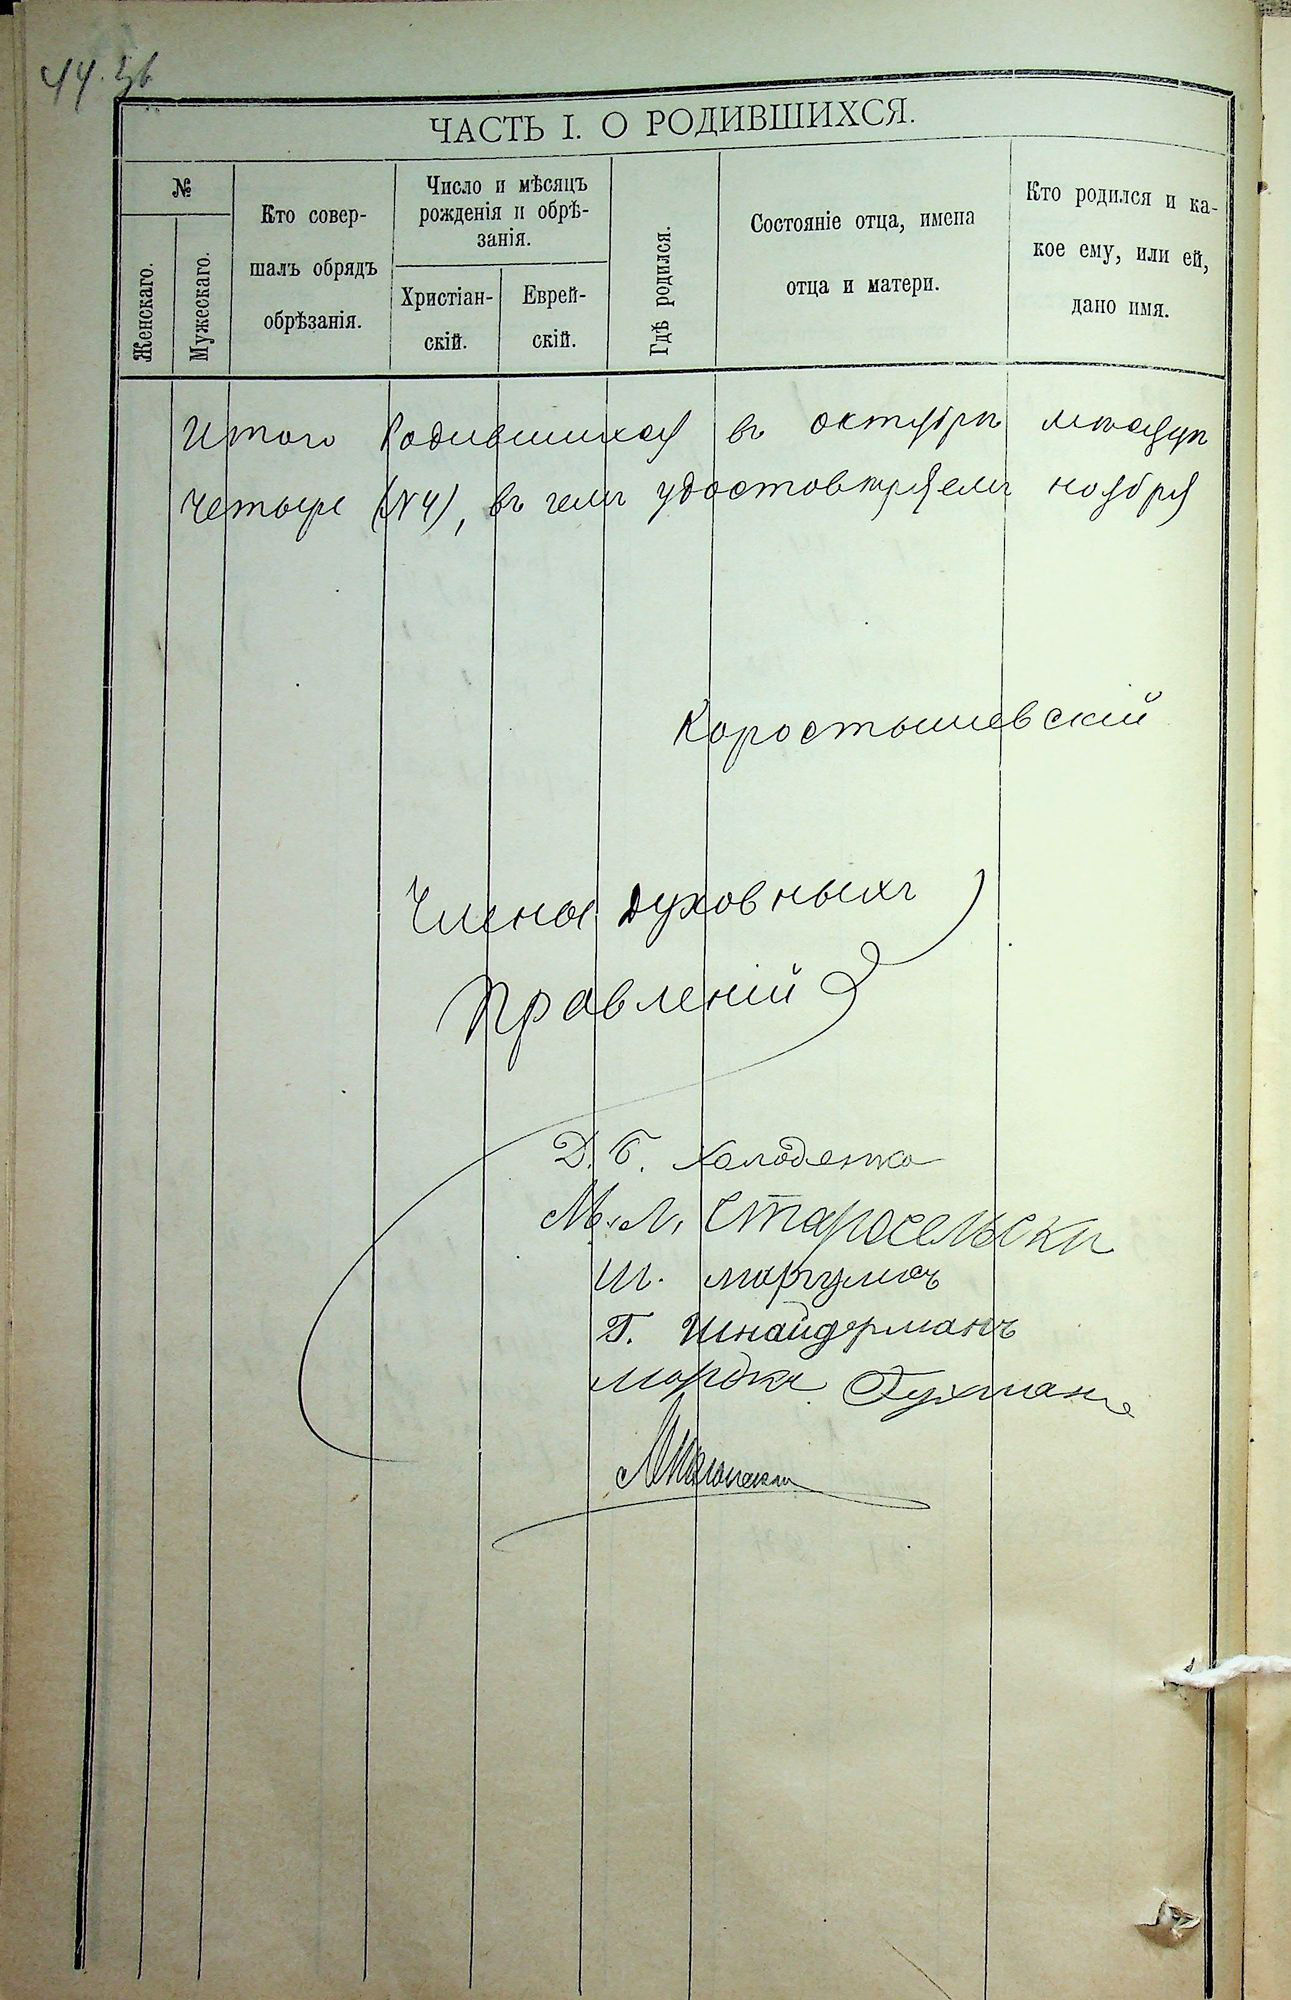 44.
ЧАСТЬ I. О РОДИВШИХСЯ.
№
Женскаго.
Мужескаго.
Кто совер-
шалъ обрядъ
обрѣзанія.
Число и мѣсяцъ
рожденія и обрѣ-
занія.
Христіан-
скій.
Еврей-
скій.
Гдѣ родился.
Состояніе отца, имена
отца и матери.
Кто родился и ка-
кое ему, или ей,
дано имя.
Итого Родившихся въ октябрѣ мѣсяцѣ
четыре (№4), въ чемъ удостовѣряемъ ноября
Коростышевскій
Члены духовныхъ
Правленій
Д. Б. Холоденко
М. Л. Старосельски
Ш.
Г. Шнайдерманъ
Мордко Гухман